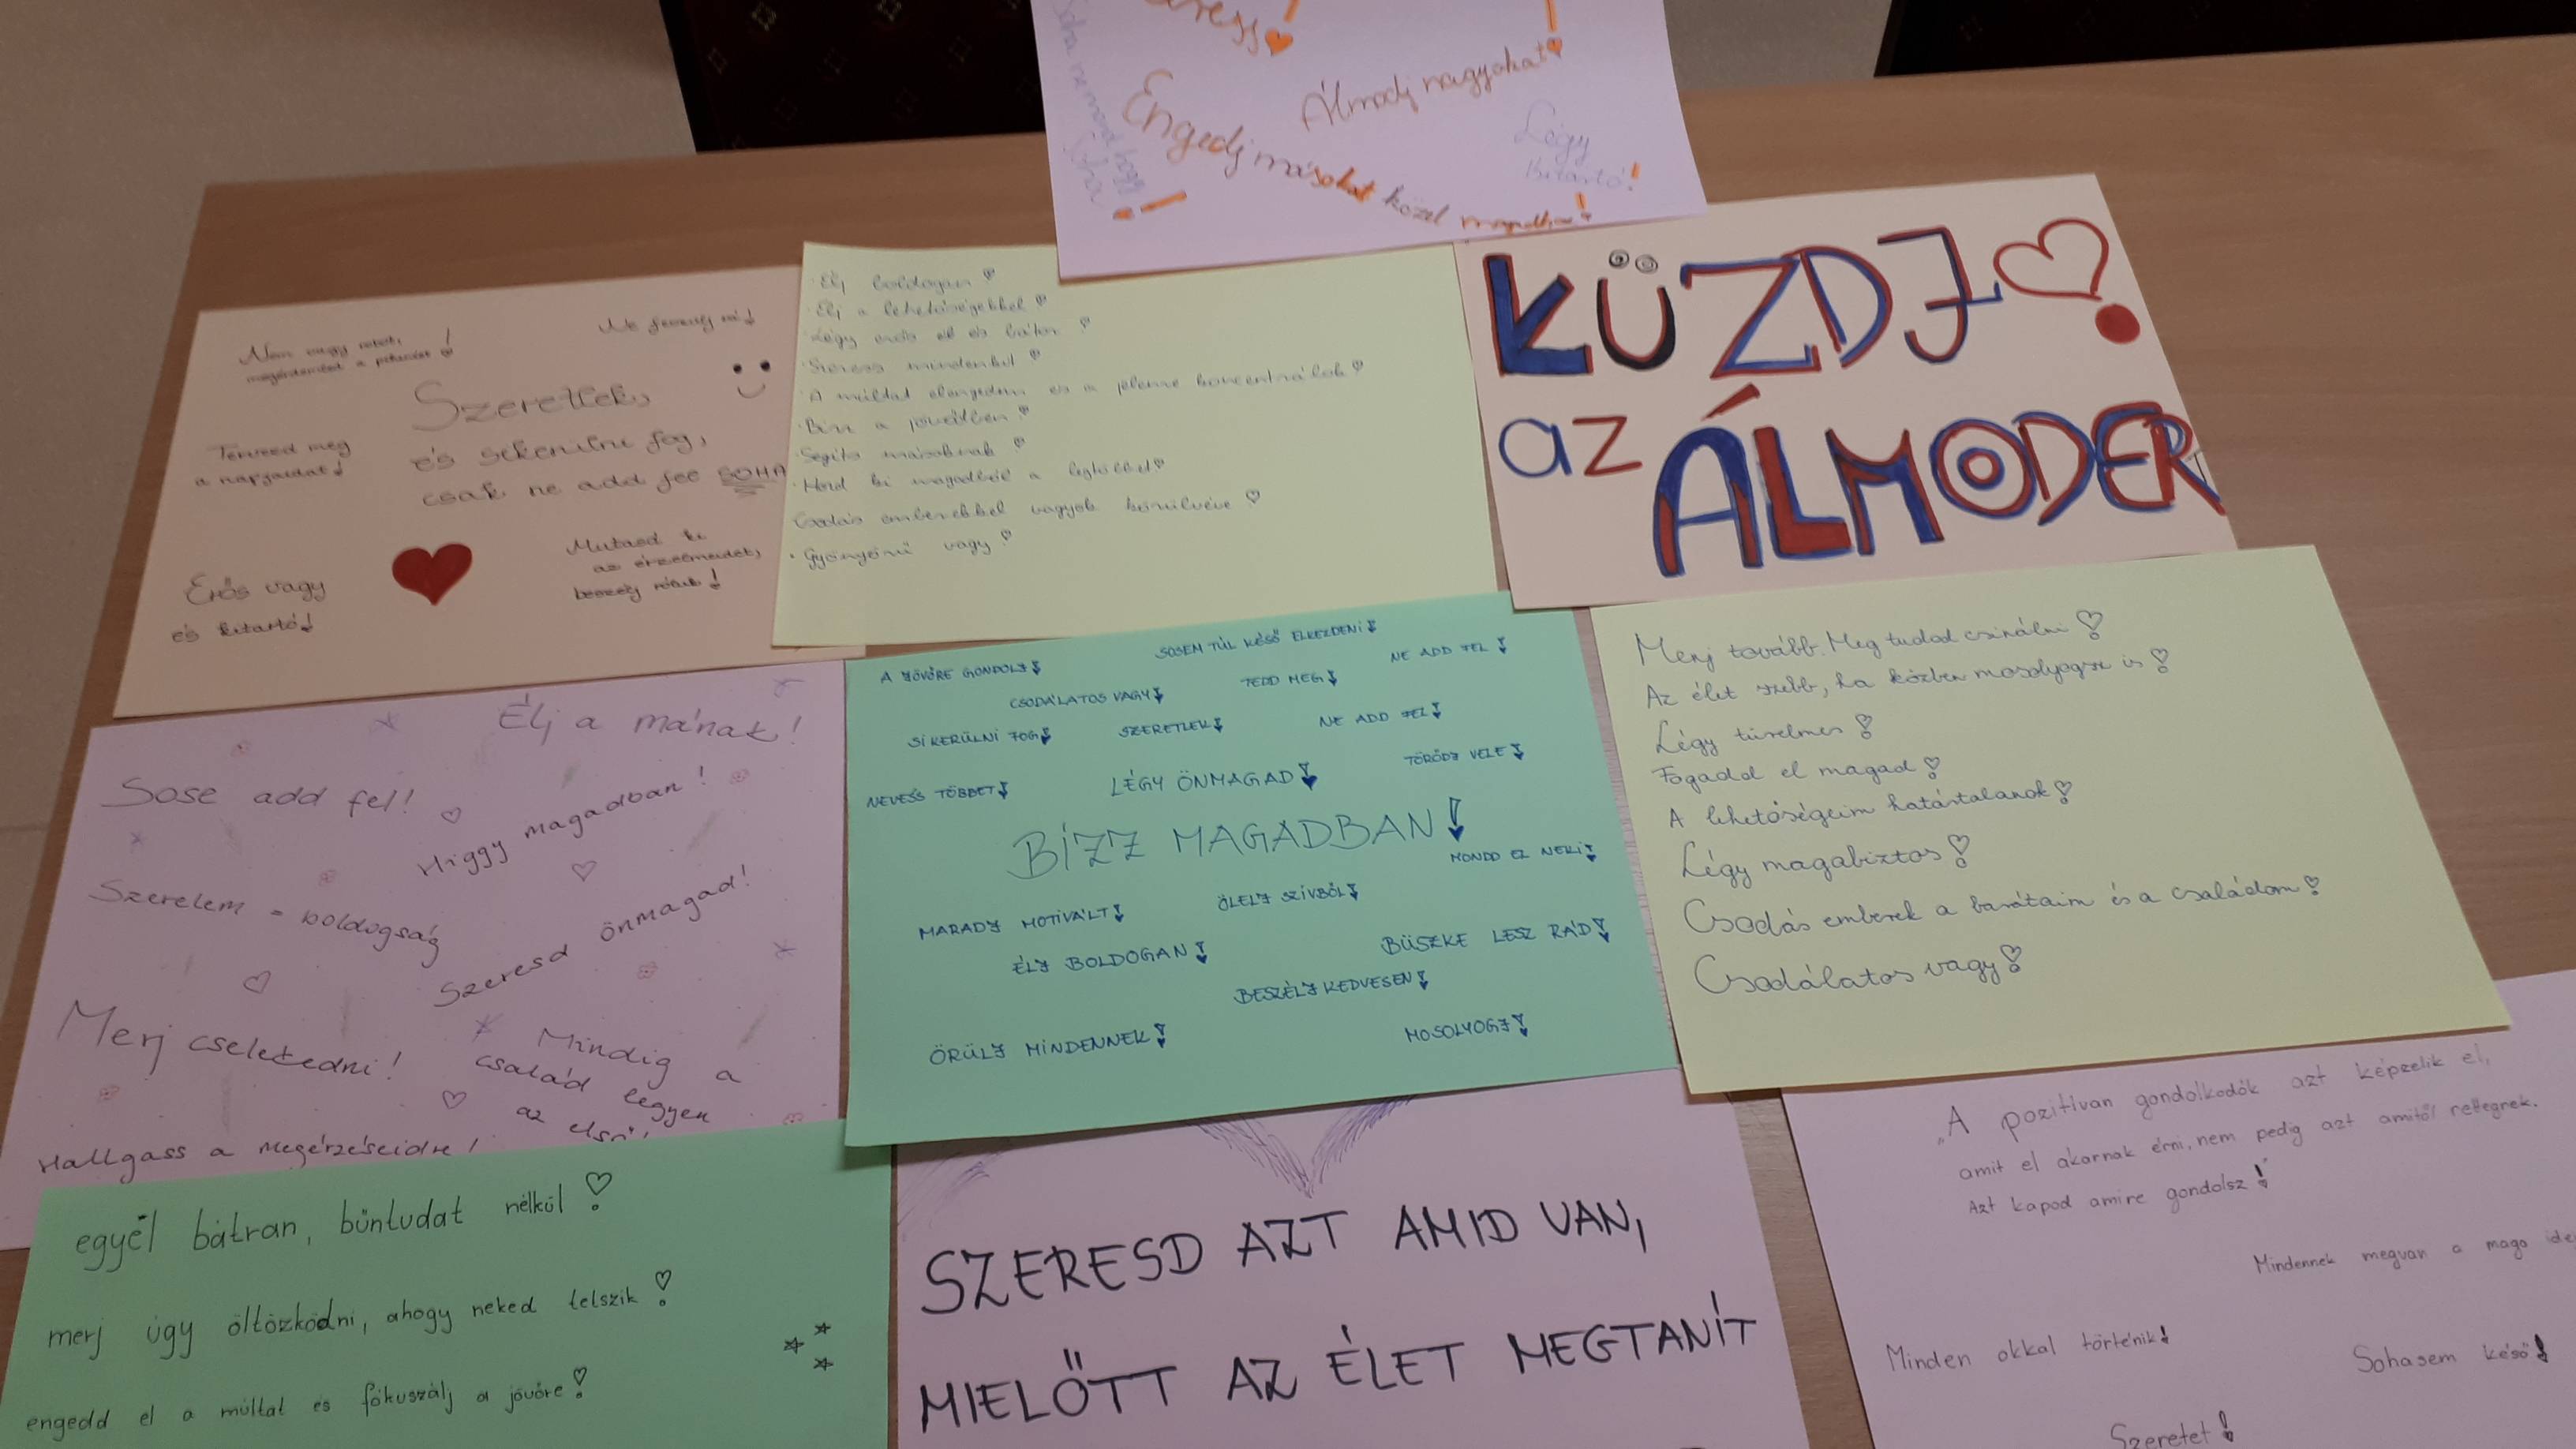 Álmodj nagyokat!
Engedj másokat közel magadhoz!
Légy
kitartó!
Ne
Szeretlek,
és sikerülni fog,
csak ne add fel SOHA
Tervezd meg
a napjaidat!
Mutasd ki
az érzelmeidet,
beszélj róluk!
Erős vagy
és kitartó!
· Élj boldogan!
· Élj a lehetőségekkel!
· Légy erős és bátor!
· Szeress mindenkit!
· A múltat elengedem és a jelenre koncentrálok!
· Bízz a jövődben!
· Segíts másoknak!
· Hozd ki magadból a legtöbbet!
Csodás emberekkel vagyok körülvéve!
· Gyönyörű vagy!
KÜZDJ
az ÁLMODÉR
A JÖVŐRE GONDOLJ!
SOSEM TÚL KÉSŐ ELKEZDENI!
NE ADD FEL!
CSODÁLATOS VAGY!
TEDD MEG!
SIKERÜLNI FOG!
SZERETLEK!
NE ADD FEL!
NEVESS TÖBBET!
LÉGY ÖNMAGAD!
TÖRŐDJ VELE!
BÍZZ MAGADBAN!
MONDD EL NEKI!
MARADJ MOTIVÁLT!
ÖLELJ SZÍVBŐL!
ÉLJ BOLDOGAN!
BÜSZKE LESZ RÁD!
BESZÉLJ KEDVESEN!
ÖRÜLJ MINDENNEK!
MOSOLYOGJ!
Merj tovább. Meg tudod csinálni!
Az élet szebb, ha közben mosolyogsz is!
Légy türelmes!
Fogadd el magad!
A lehetőségeim határtalanok!
Légy magabiztos!
Csodás emberek a barátaim és a családom!
Csodálatos vagy!
Élj a mának!
Sose add fel!
Higgy magadban!
Szerelem = boldogság
Szeresd önmagad!
Merj cselekedni!
Mindig a
család legyen
az első!
Hallgass a megérzéseidre!
egyél bátran, bűntudat nélkül!
merj úgy öltözködni, ahogy neked tetszik!
engedd el a múltat és fókuszálj a jövőre!
SZERESD AZT AMID VAN,
MIELŐTT AZ ÉLET MEGTANÍT
„A pozitívan gondolkodók azt képzelik el,
amit el akarnak érni, nem pedig azt amitől rettegnek.
Azt kapod amire gondolsz!"
Mindennek megvan a maga ide
Minden okkal történik!
Sohasem késő!
Szeretet!